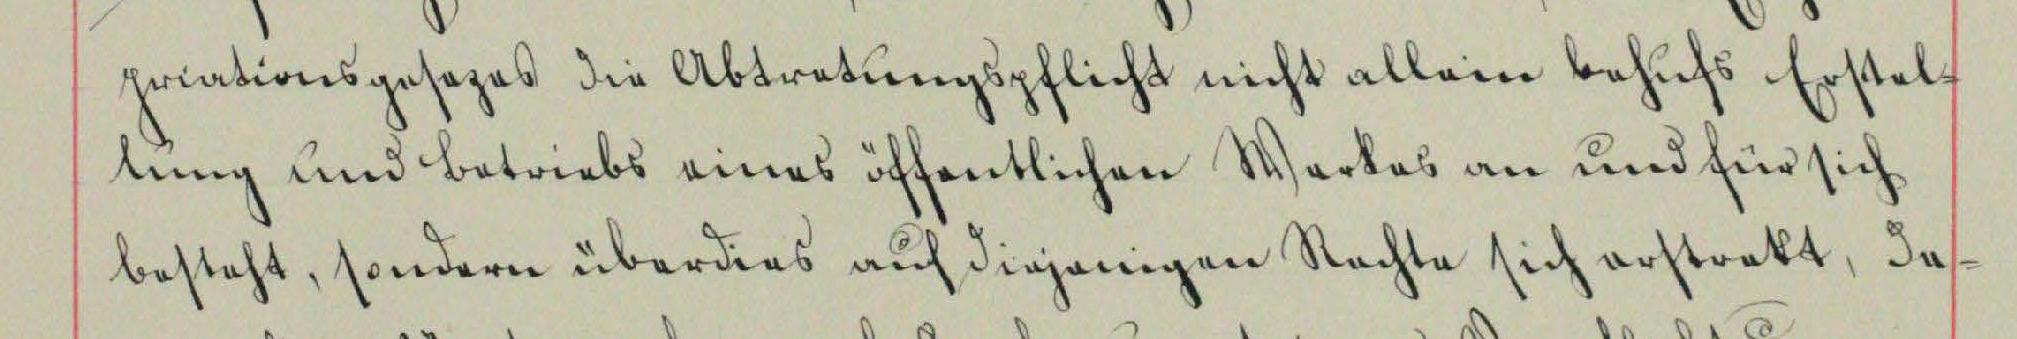 priationsgesezes die Abtretungspflicht nicht allein behufs Erstel-
lung und Betriebs eines öffentlichen Werkes an und für sich
besteht, sondern überdies auf diejenigen Rechte sich erstrekt, de-